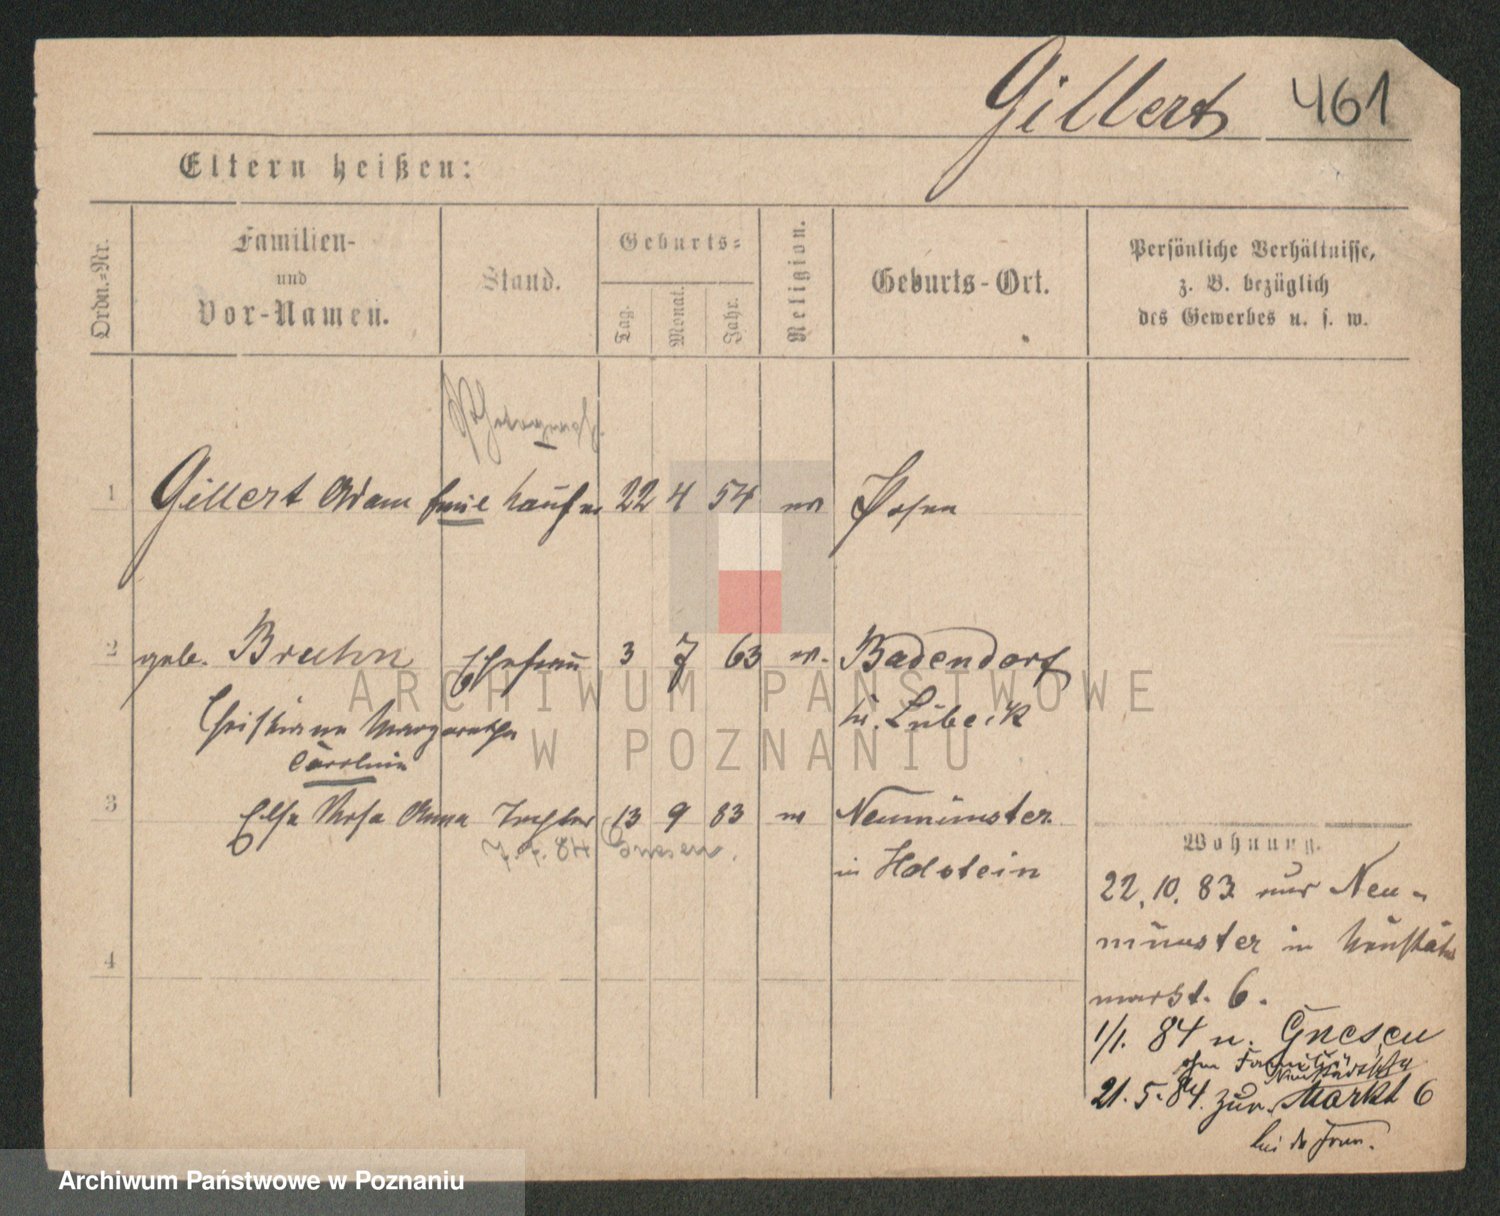 Gillert 461
Eltern heißen:
Ordn.-Nr.
Familien-
und
Vor-Namen.
Stand.
Geburts-
Tag.
Monat.
Jahr.
Religion.
Geburts-Ort.
Persönliche Verhältnisse,
z. B. bezüglich
des Gewerbes u. s. w.
Photograph.
1 Gillert Adam Emil 22 4 54 Posen
2 geb. Bruhn Ehefrau 3 7 63 Badendorf
Christiane Margarethe b. Lübeck
Caroline
3 Else Rosa Anna Tochter 13 9 83 Neumünster
84 Gnesen. in Holstein
4
Wohnung.
22.10.83 aus Neu-
münster in Neustädt.
markt. 6.
1/1. 84 n. Gnesen
ohne Familie
Neustädtischer
21.5.84. zur. Markt 6
bei der Frau.
ARCHIWUM PAŃSTWOWE
W POZNANIU
Archiwum Państwowe w Poznaniu